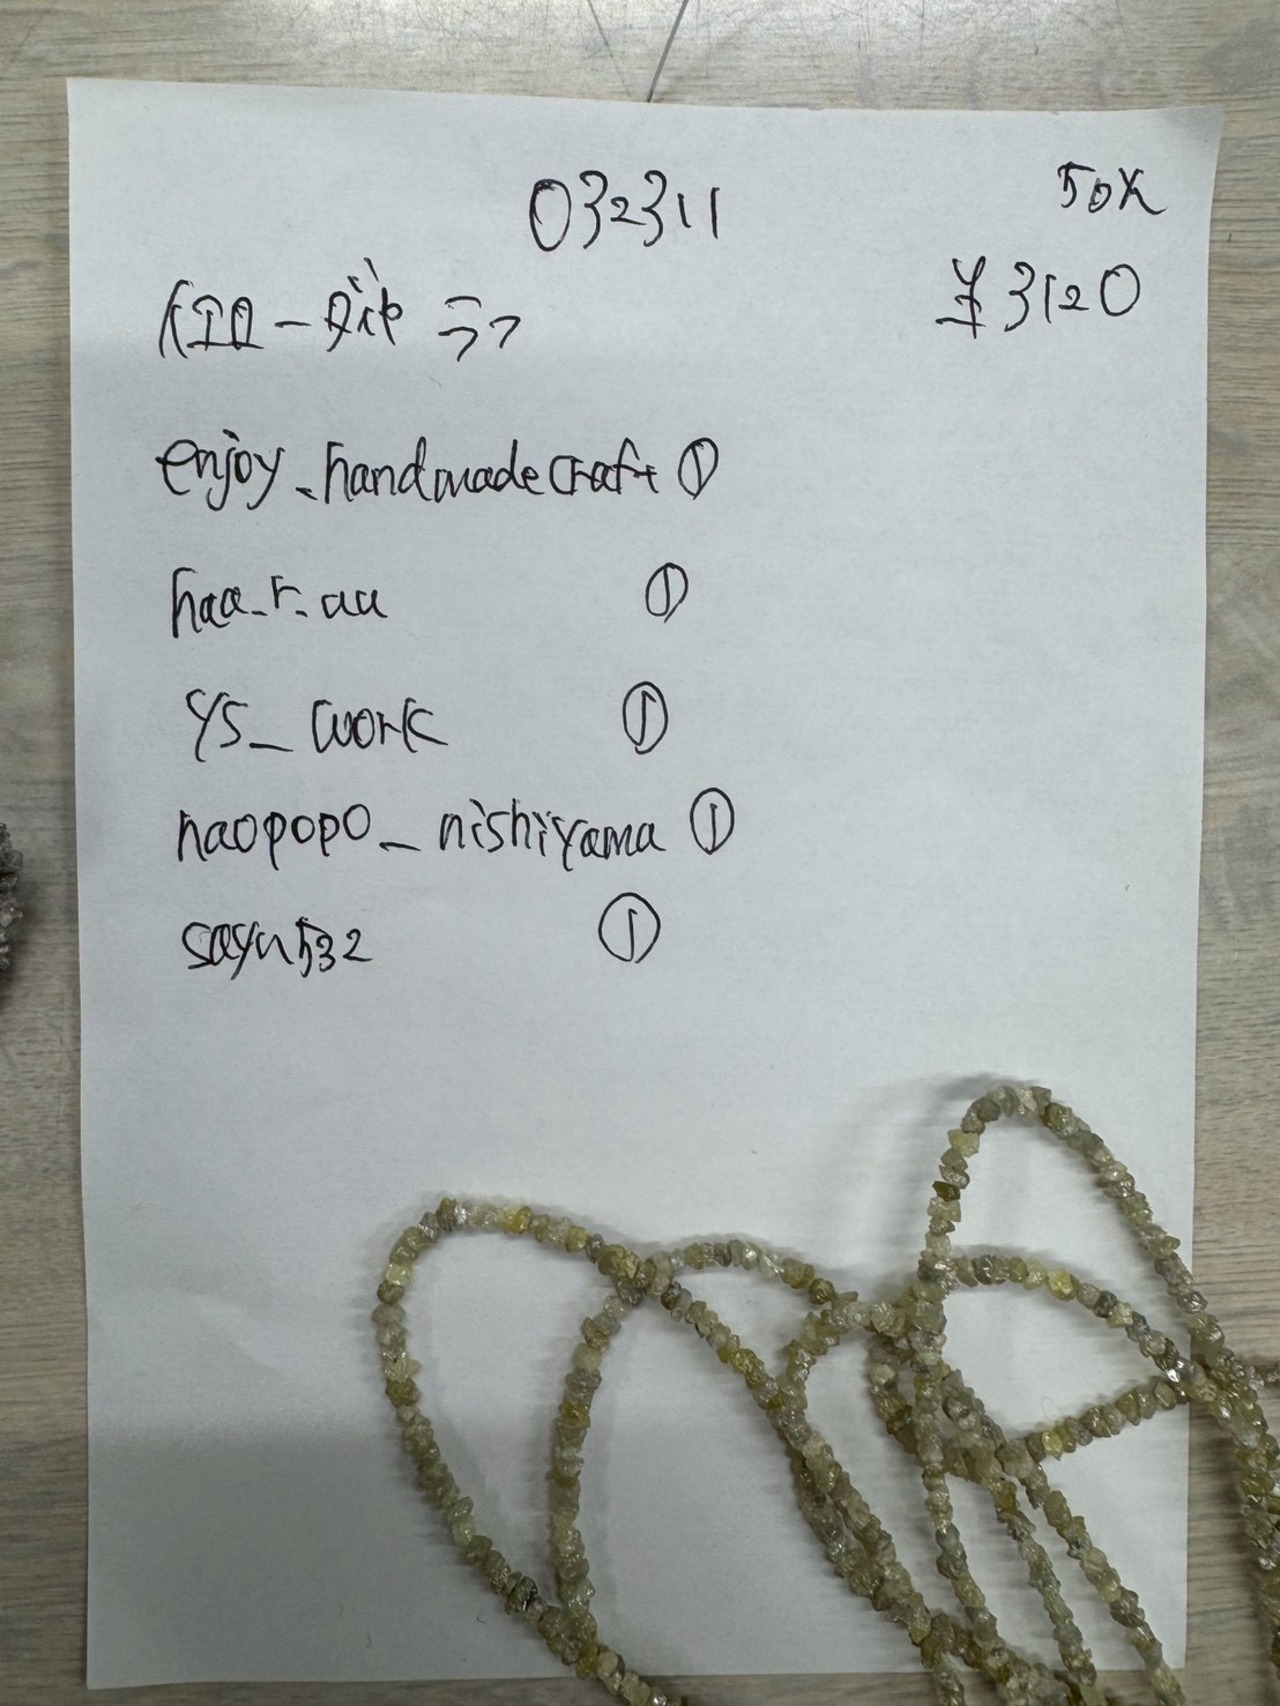 032311
50X
¥3120
enjoy_handmadecraft ①
haa_r_au ①
YS_work ①
naopopo_nishiyama ①
sayu532 ①